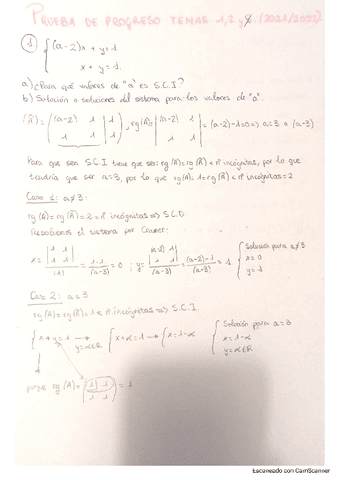 PRUEBA DE PROGRESO TEMAS 1,2 y 4. (2021/2022)
1 { (a-2)x + y = 1
x + y = 1.
a) ¿Para qué valores de "a" es S.C.I?
b) Solución o soluciones del sistema para los valores de "a".
(Ā) = ( (a-2) 1 | 1 ; 1 1 | 1 ), rg(A) = | (a-2) 1 ; 1 1 | = (a-2)-1=0 => a=3 (a-3)
Para que sea S.C.I tiene que ser: rg(A)=rg(Ā) < nº incógnitas, por lo que
tendría que ser a=3, por lo que rg(A)=1=rg(Ā) < nº incógnitas=2
Caso 1: a≠3:
rg(A)=rg(Ā)=2=nº incógnitas => S.C.D
Resolvemos el sistema por Cramer:
x = | 1 1 ; 1 1 | / |A| = 1-1 / (a-3) = 0 ; y = | (a-2) 1 ; 1 1 | / (a-3) = (a-2)-1 / (a-3) = 1 { Solución para a≠3
x=0
y=1
Caso 2: a=3
rg(A)=rg(Ā)=1 < nº incógnitas => S.C.I
{ x+y=1 → y=α∈R { x+α=1 → { x=1-α { Solución para a=3
x=1-α
y=α∈R
rg(A) = | 1 1 ; 1 1 | = 1
Escaneado con CamScanner